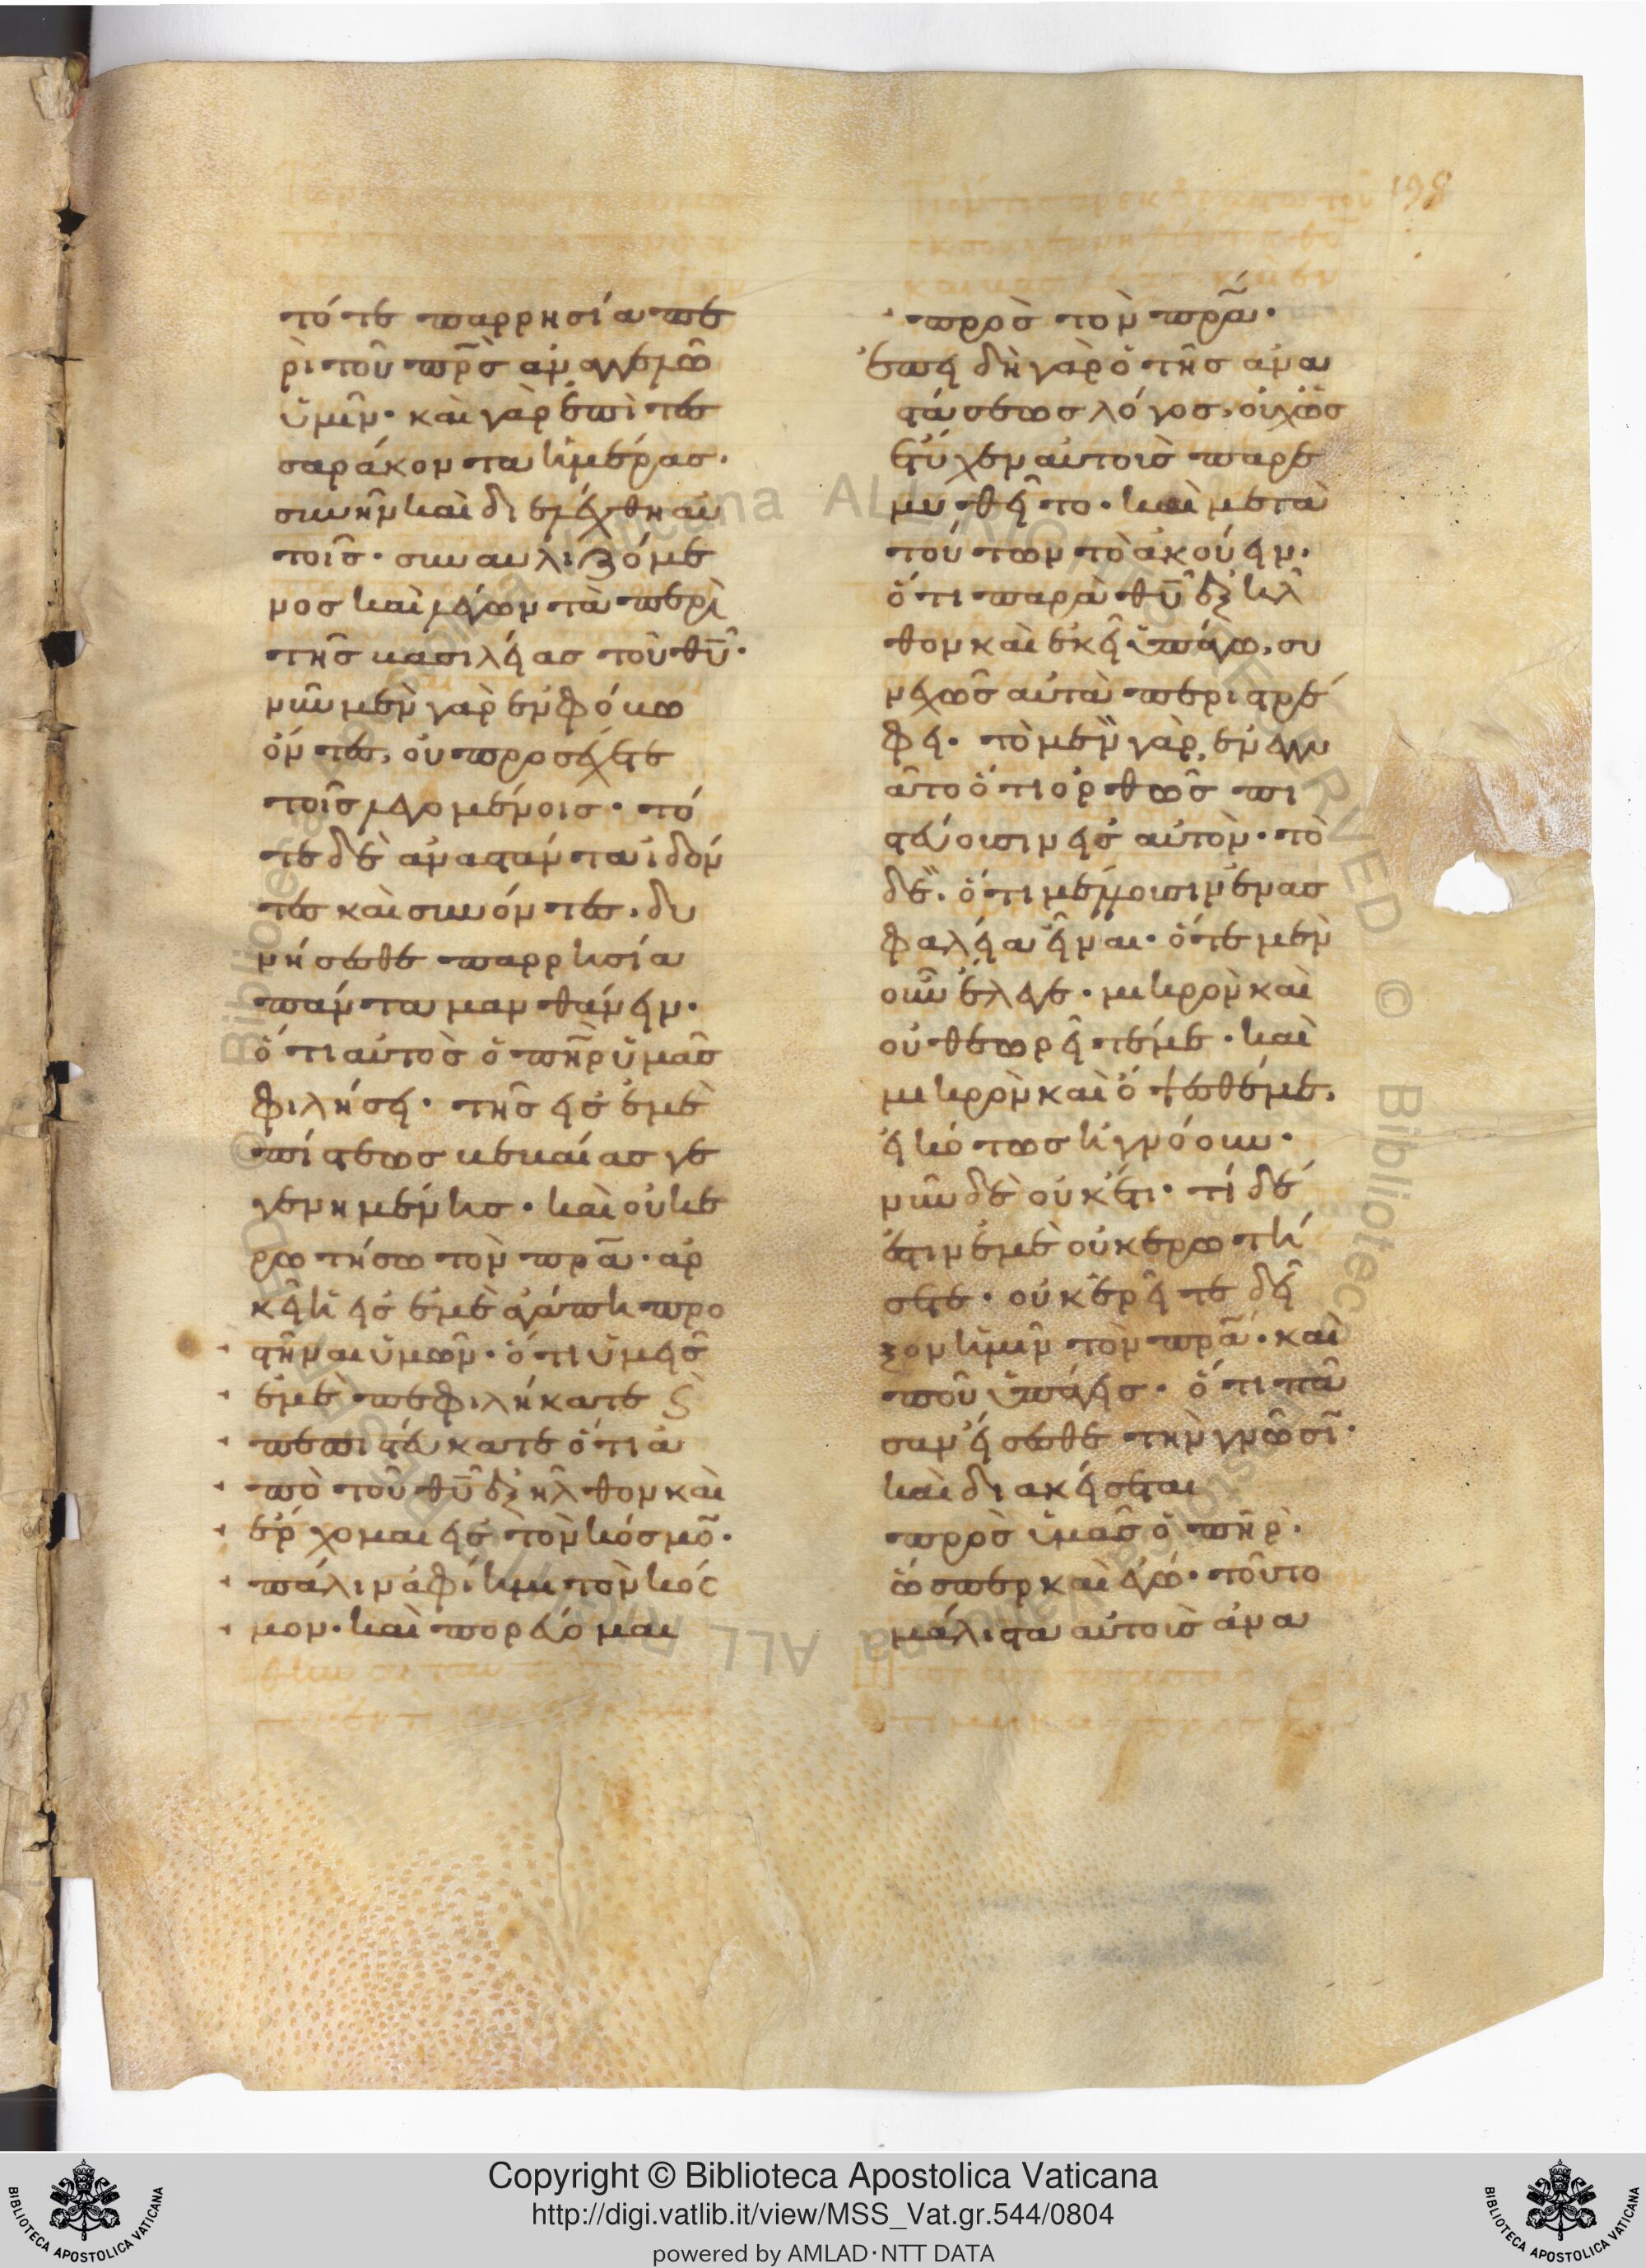 τότε παρρησία πε
ρὶ τοῦ πρ̅ς ἀναγγελῶ
ὑμῖν· καὶ γὰρ ἐπὶ τεσ
σαράκοντα ἡμέρας·
συνῆν καὶ διελέχθη αὐ
τοῖς· συναυλιζόμε
νος καὶ λέγων τὰ περὶ
τῆς βασιλείας τοῦ θυ̅·
νῦν μὲν γὰρ ἐν φόβω
ὄντες, οὐ προσέχετε
τοῖς λεγομένοις· τό
τε δὲ ἀναστάντα ἰδόν
τες καὶ συνόντες, δυ
νήσεσθε παρρησία
πάντα μανθάνειν·
ὅτι αὐτὸς ὁ πη̅ρ ὑμᾶς
φιλήσει· τῆς εἰς ἐμὲ
πίστεως βεβαίας γε
γενημένης· καὶ οὐκ ἐ
ρωτήσω τὸν πρ̅α· ἀρ
κεῖ ἡ εἰς ἐμὲ ἀγάπη προ
στῆναι ὑμῶν· ὅτι ὑμεῖς
ἐμὲ πεφιλήκατε ϛ̀
πεπιστεύκατε ὅτι ἀ
πὸ τοῦ θυ̅ ἐξῆλθον καὶ
ἔρχομαι εἰς τὸν κόσμο̅·
πάλιν ἀφίημι τὸν κόσ
μον· καὶ πορεύομαι
πρὸς τὸν πρ̅α·
ἐπειδὴ γὰρ ὁ τῆς ἀνα
στάσεως λόγος, οὐχ ὡς
ἔτυχεν αὐτοὺς παρε
μυθεῖτο· καὶ μετὰ
τούτων τὸ ἀκούειν·
ὅτι παρὰ θυ̅ ἐξῆλ
θον καὶ ἐκεῖ ὑπάγω, συ
νεχῶς αὐτὰ περιστρέ
φει· τὸ μὲν γὰρ, ἐνεγγυ
ᾶτο ὅτι ὀρθῶς πι
στεύουσιν εἰς αὐτὸν· τὸ
δὲ, ὅτι μένουσιν ἐν ἀσ
φαλεία εἶναι· ὅτε μὲν
οὖν ἔλεγε· μικρὸν καὶ
οὐ θεωρεῖτέ με· καὶ
μικρὸν καὶ ὄψεσθέ με,
εἰκότως ἠγνόουν·
νῦν δὲ οὐκέτι· τί δέ
ἐστιν ἐμὲ οὐκ ἐρωτή
σετε· οὐκ ἐρεῖτε δεῖ
ξον ἡμῖν τὸν πρ̅α· καὶ
ποῦ ὑπάγεις· ὅτι πᾶ
σαν εἴσεσθε τὴν γνῶσι̅·
καὶ διακείσεται
πρὸς ὑμᾶς ὁ πη̅ρ·
ὥσπερ καὶ ἐγώ· τοῦτο
μάλιστα αὐτοὺς ἀνα
Copyright © Biblioteca Apostolica Vaticana
http://digi.vatlib.it/view/MSS_Vat.gr.544/0804
powered by AMLAD·NTT DATA
BIBLIOTECA APOSTOLICA VATICANA
BIBLIOTECA APOSTOLICA VATICANA